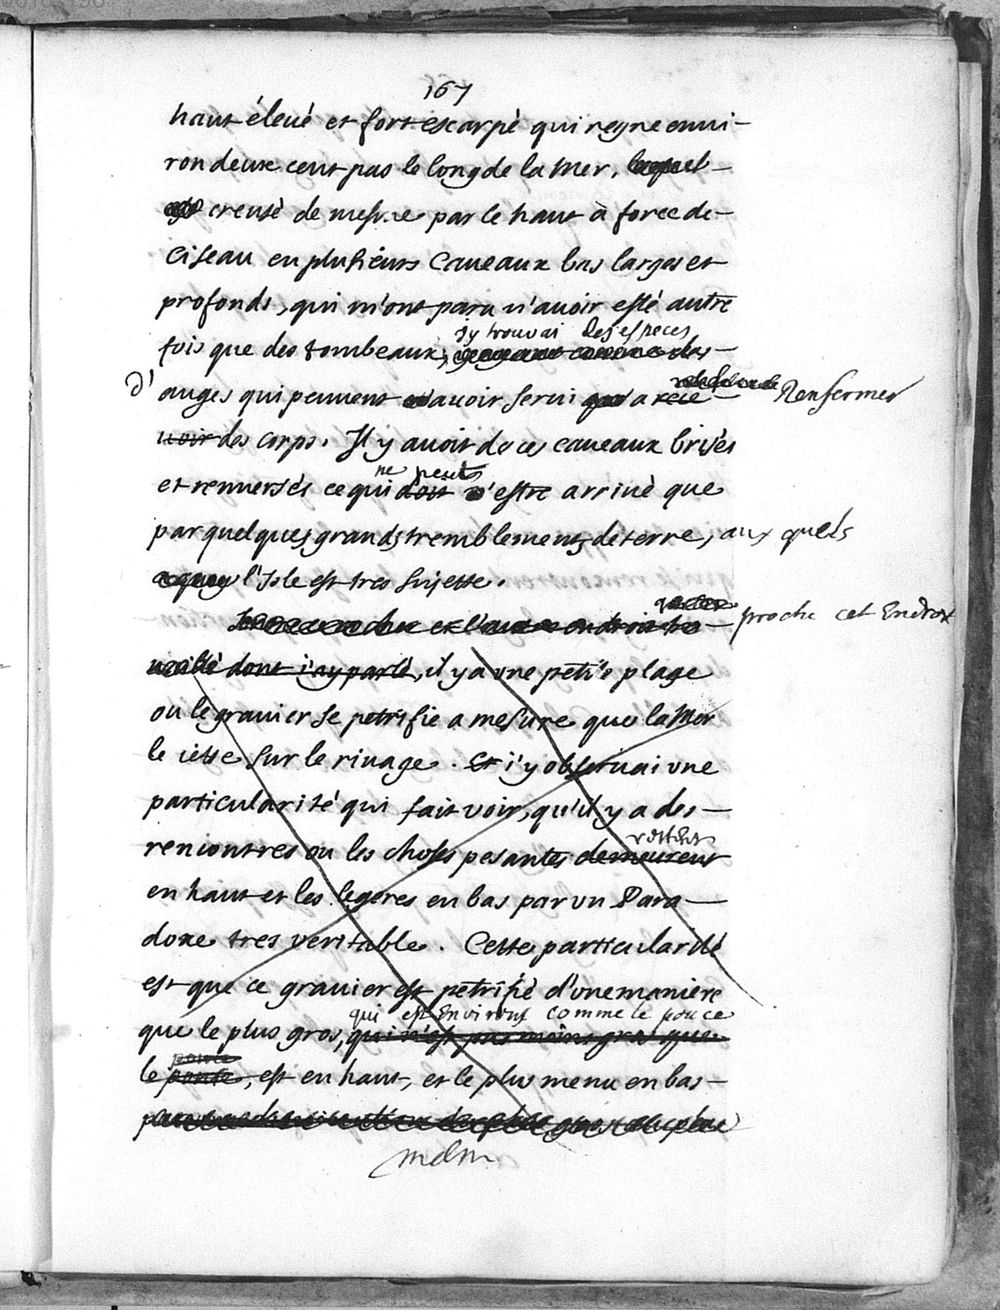 167
haut élevé et fort escarpé qui regne envi-
ron deux cent pas le long de la Mer, lequel
creusé de mesme par le haut à force de
Ciseau en plusieurs Caveaux bas larges et
profonds, qui m'ont paru n'avoir esté autre
j'y trouvai des especes
fois que des tombeaux,
d'auges qui peuvent avoir servi a rece Renfermer
uoir des corps. Il y avoit de ces caveaux brisés
ne peut
et renversés ce qui doit n'estre arrivé que
par quelques grands tremblements de terre, aux quels
l'Isle est tres sujette.
proche cet Endroit
dont j'ay parlé, il y a vne petite plage
ou le gravier se petrifie a mesure que la Mer
le iette sur le rivage. Et i'y observai vne
particularité qui fait voir, qu'il y a des
restent
rencontres ou les choses pesantes demeurent
en haut et les legeres en bas par vn Para
doxe tres veritable. Cette particularité
est que ce gravier est petrifié d'vne maniere
qui est Environ comme le pouce
que le plus gros, qui n'est pas moins gros que
pouce
le ponte, est en haut, et le plus menu en bas